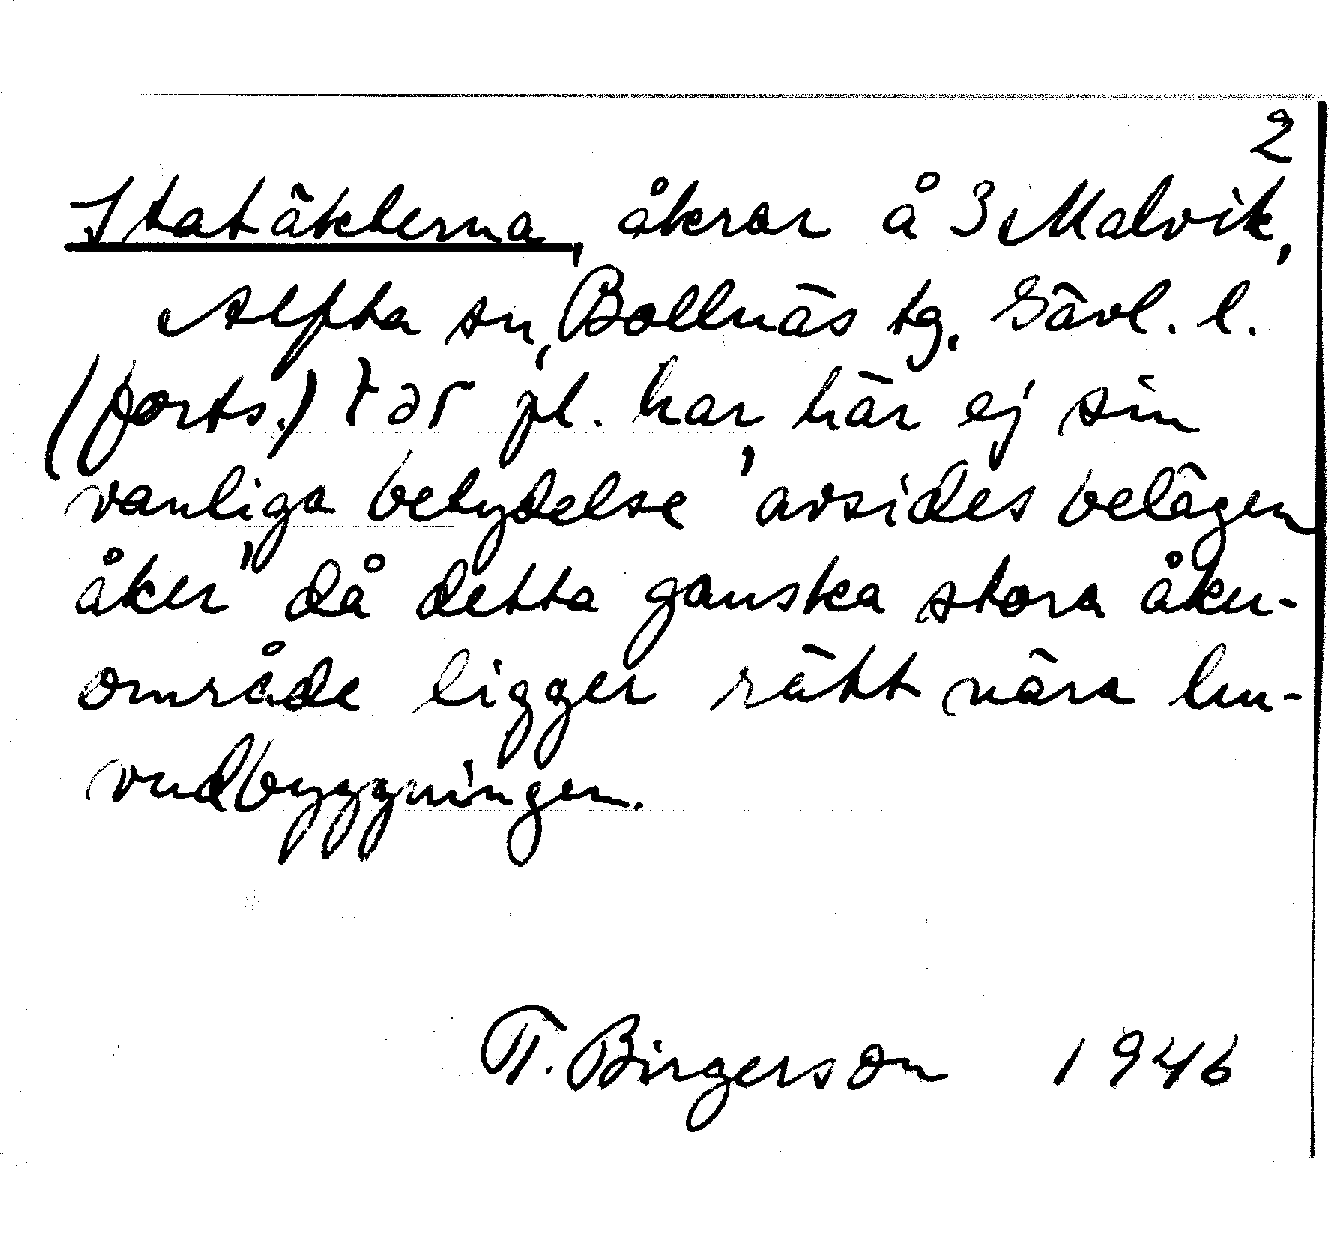 2
Statäkterna, åkrar å 3 Malvik,
Alfta sn, Bollnäs tg. Gävl. l.
(forts.) tər pl. har här ej sin
vanliga betydelse 'avsides belägen
åker' då detta ganska stora åker-
område ligger rätt nära hu-
vudbyggningen.
T. Birgerson 1946